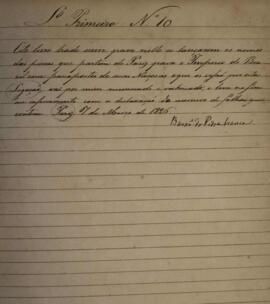 Lº Primeiro Nº 10
Este livro hade servir para nelle se lançarem os nomes
das pessoas que partem de Pariz para o Imperio do Bra
zil com passaportes
Legação, vai por mim numerado e rubricado, e leva no fim
o encerramento com a declaração do numero de folhas que
contem. Pariz 7 de Março de 1826
Barão de Pedra branca